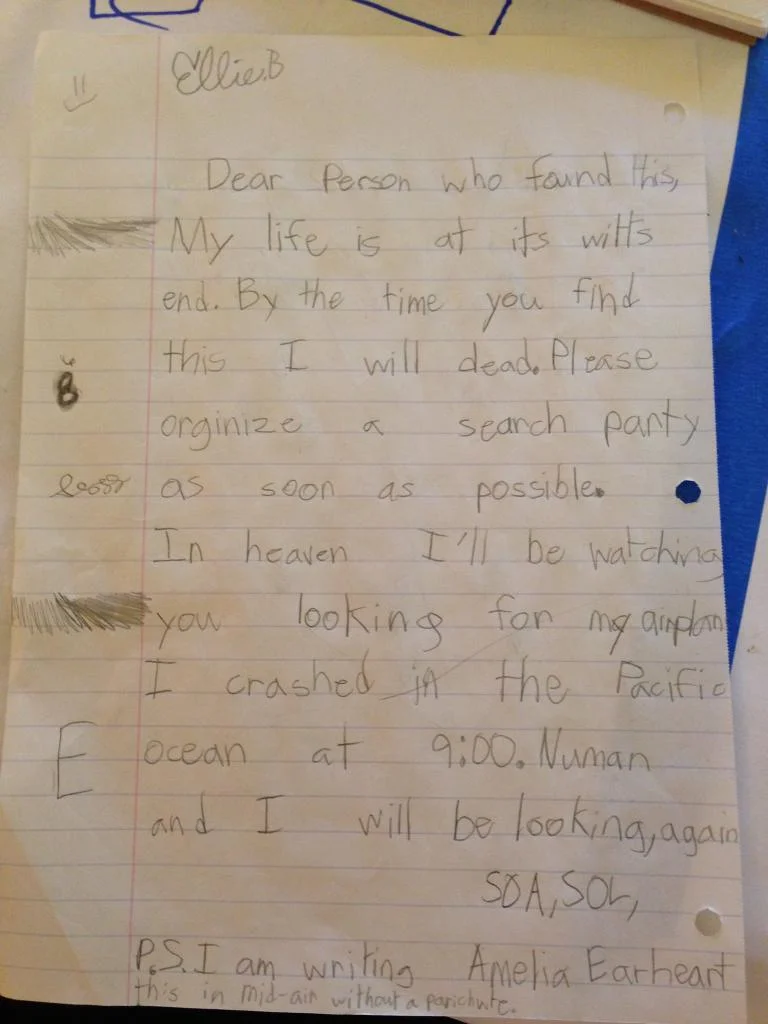 Ellie.B
Dear Person who found this,
My life is at its witts
end. By the time you find
this I will dead. Please
orginize a search party
as soon as possible.
In heaven I'll be watching
you looking for my airplan
I crashed in the Pacific
ocean at 9:00. Numan
and I will be looking, again
SOA, SOL,
Amelia Earheart
P.S. I am writing
this in mid-air without a parichute.
B
E